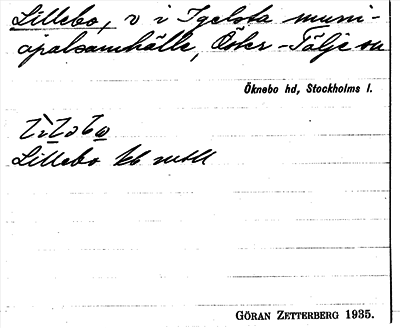 Lillebo, v i Igelsta muni-
cipalsamhälle, Öster-Tälje sn
Öknebo hd, Stockholms l.
Lillebo kb
GÖRAN ZETTERBERG 1935.